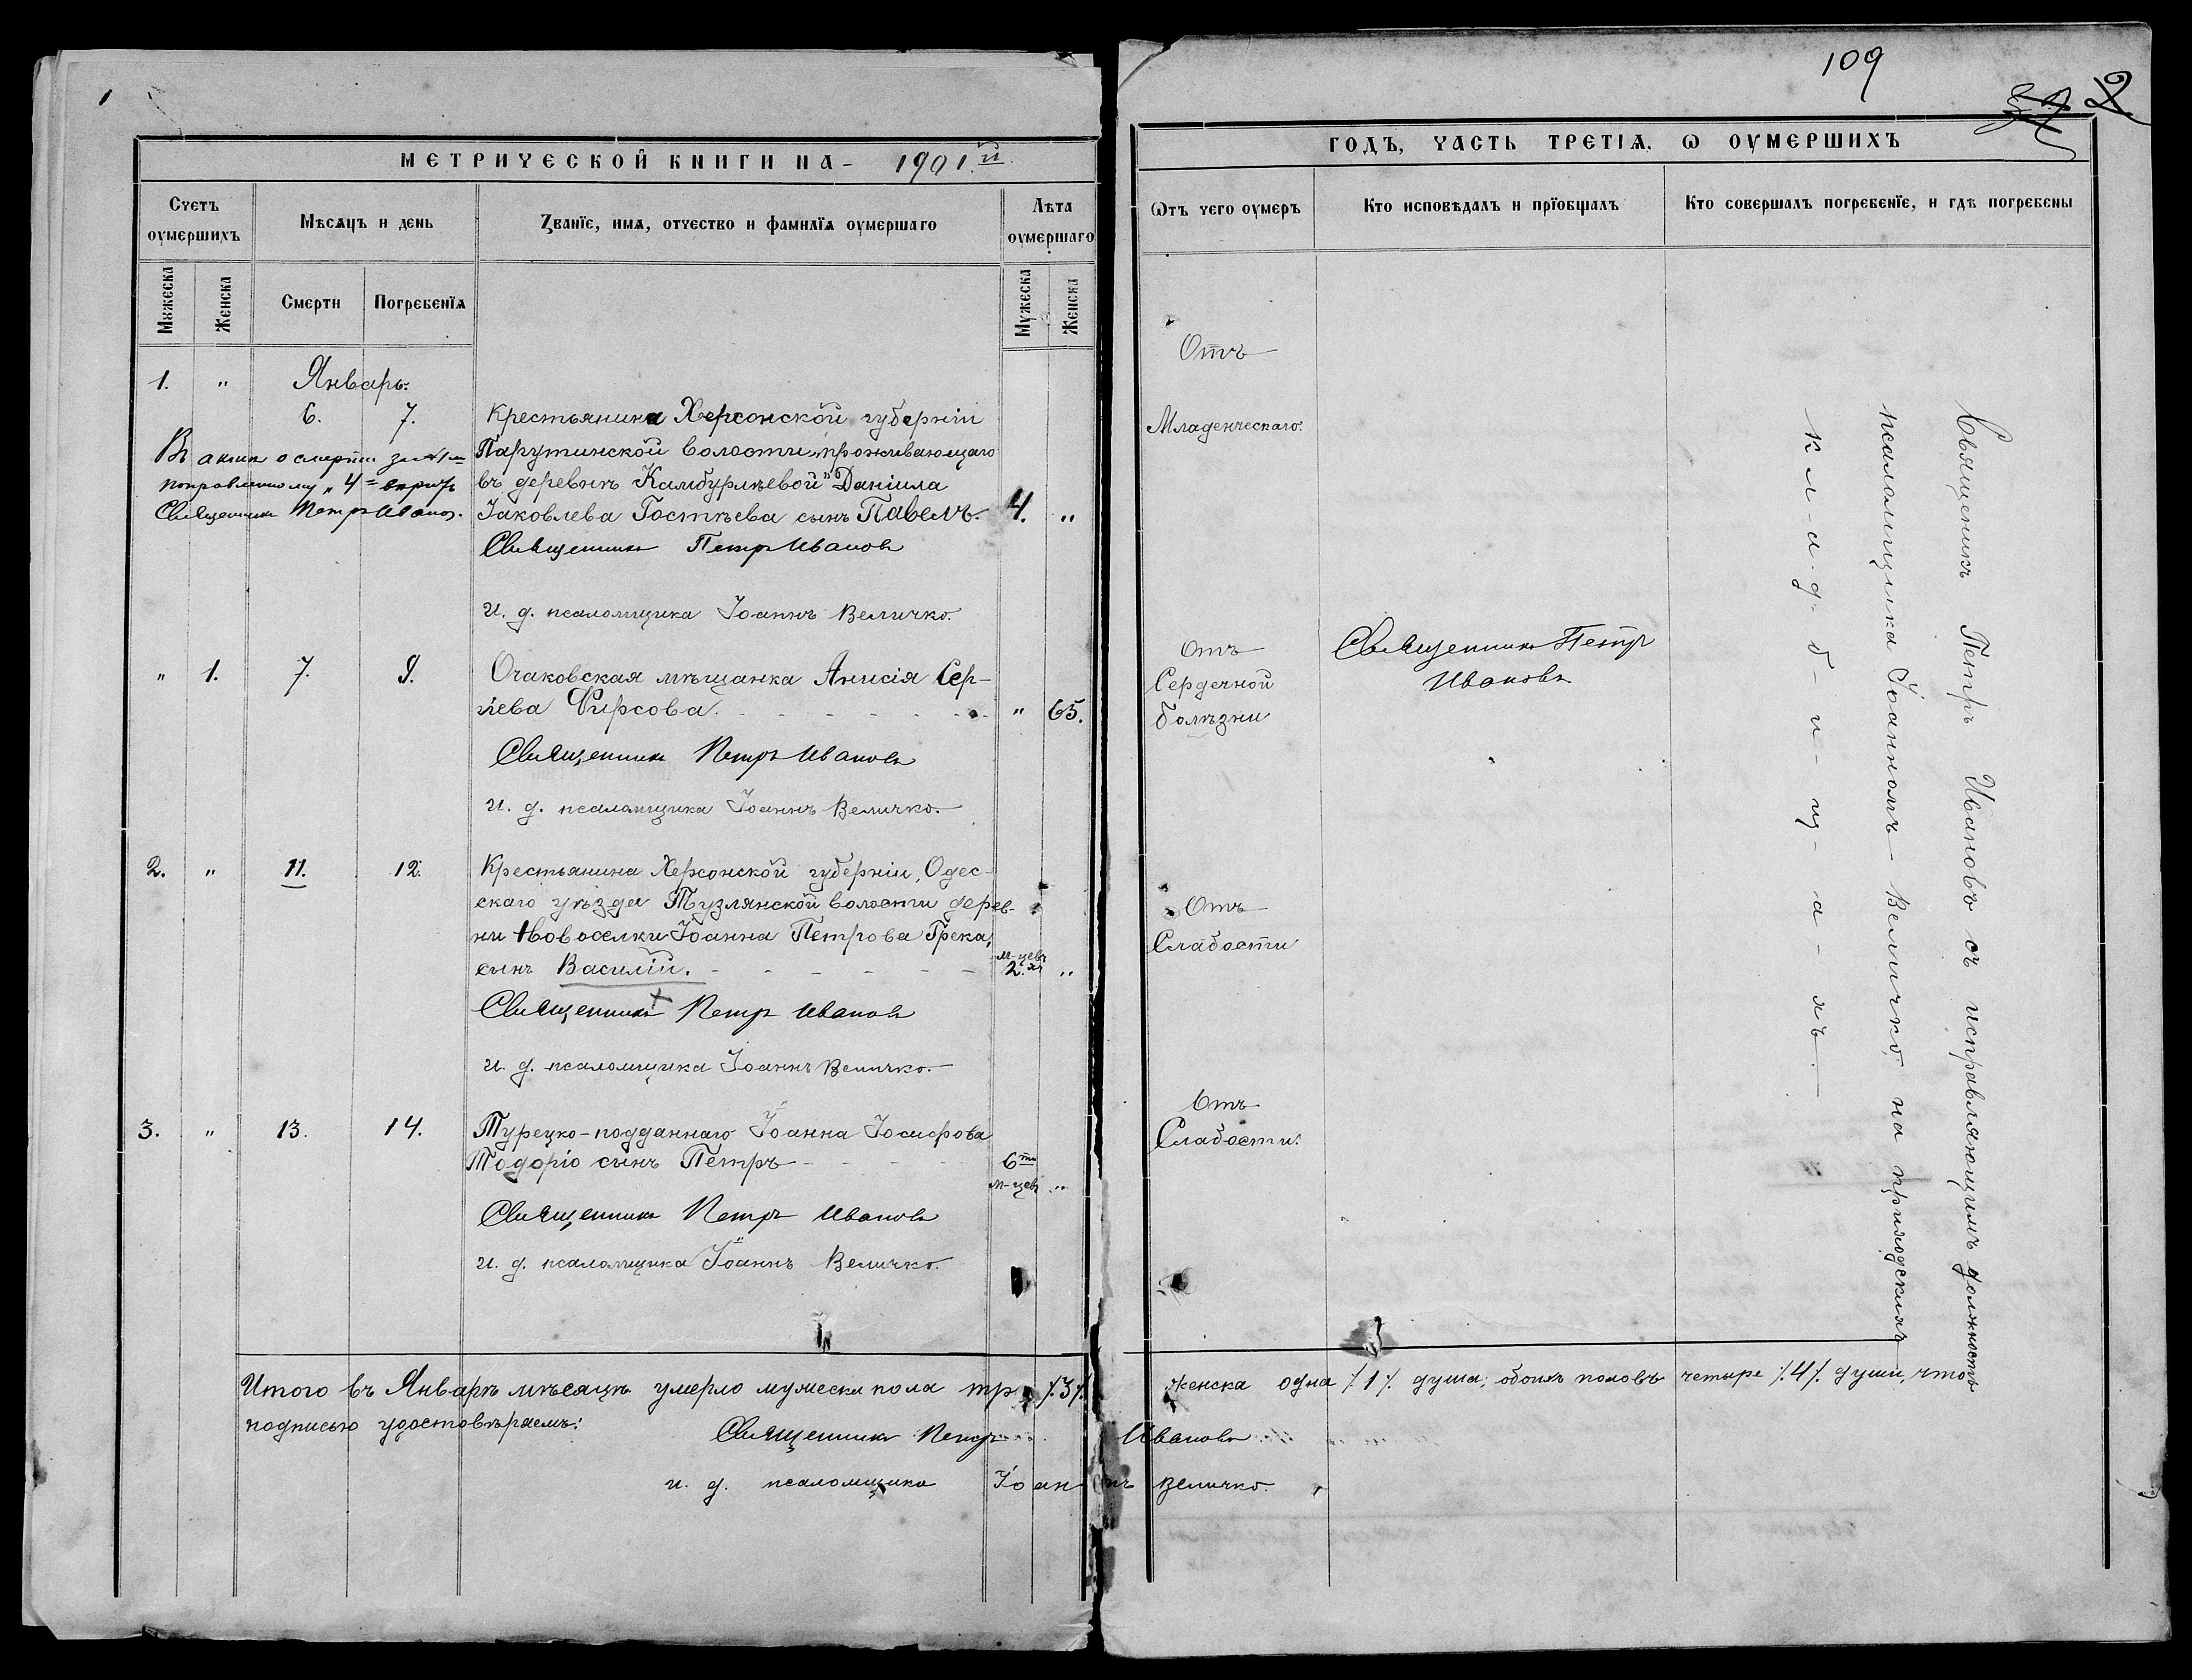 1
109
2
МЕТРИЧЕСКОЙ КНИГИ НА - 1901.й
ГОДЪ, ЧАСТЬ ТРЕТІѦ, Ѡ ОУМЕРШИХЪ
Счетъ оумершихъ
Мѣсѧцъ и день
Званїе, имѧ, отчество и фамилїѧ оумершаго
Лѣта оумершаго
Ѿтъ чего оумеръ
Кто исповѣдалъ и прїобщалъ
Кто совершалъ погребенїе, и гдѣ погребены
Мꙋжеска
Женска
Смерти
Погребенїѧ
Мꙋжеска
Женска
1. " Январь.
6. 7. Крестьянина Херсонской губерніи
Парутинской волости, проживающаго
въ деревнѣ Камбурлѣевой" Даніила
Іаковлева Гостѣева сынъ Павелъ. 4. "
Въ актѣ о смерти за №1м
поправленному „4" вѣрить
Священникъ Петръ Иванов.
Священникъ Петръ Ивановъ
И. д. псаломщика Іоаннъ Величко.
Отъ
Младенческаго.
" 1. 7. 9. Очаковская мѣщанка Анисія Сер-
гіева Фирсова. - - - - - - - " 65.
Священникъ Петръ Ивановъ
И. д. псаломщика Іоаннъ Величко.
Отъ
Сердечной
болѣзни
Священникъ Петръ
Ивановъ
2. " 11. 12. Крестьянина Херсонской губерніи, Одес-
скаго уѣзда Тузлянской волости дерев-
ни Новоселки Іоанна Петрова Грека,
сынъ Василій. - - - - - - 2.хъ м-цевъ "
Священникъ Петръ Ивановъ
И. д. псаломщика Іоаннъ Величко.
Отъ
Слабости
3. " 13. 14. Турецко-подданнаго Іоанна Іосифова
Тодоріо сынъ Петръ - - - - 6ти
м-цевъ "
Священникъ Петръ Ивановъ
И. д. псаломщика Іоаннъ Величко.
Отъ
Слабости.
Священникъ Петръ Ивановъ съ исправляющимъ должность
псаломщика Іоанномъ Величко, на приходскихъ
к л - а - д - б - и - щ - а - хъ.
Итого въ Январѣ мѣсяцѣ умерло мужеска пола три ⁒3⁒ женска одна ⁒1⁒ душа; обоихъ половъ четыре ⁒4⁒ души, что
подписью удостовѣряемъ:
Священникъ Петръ Ивановъ
и. д. псаломщика Іоаннъ Величко.